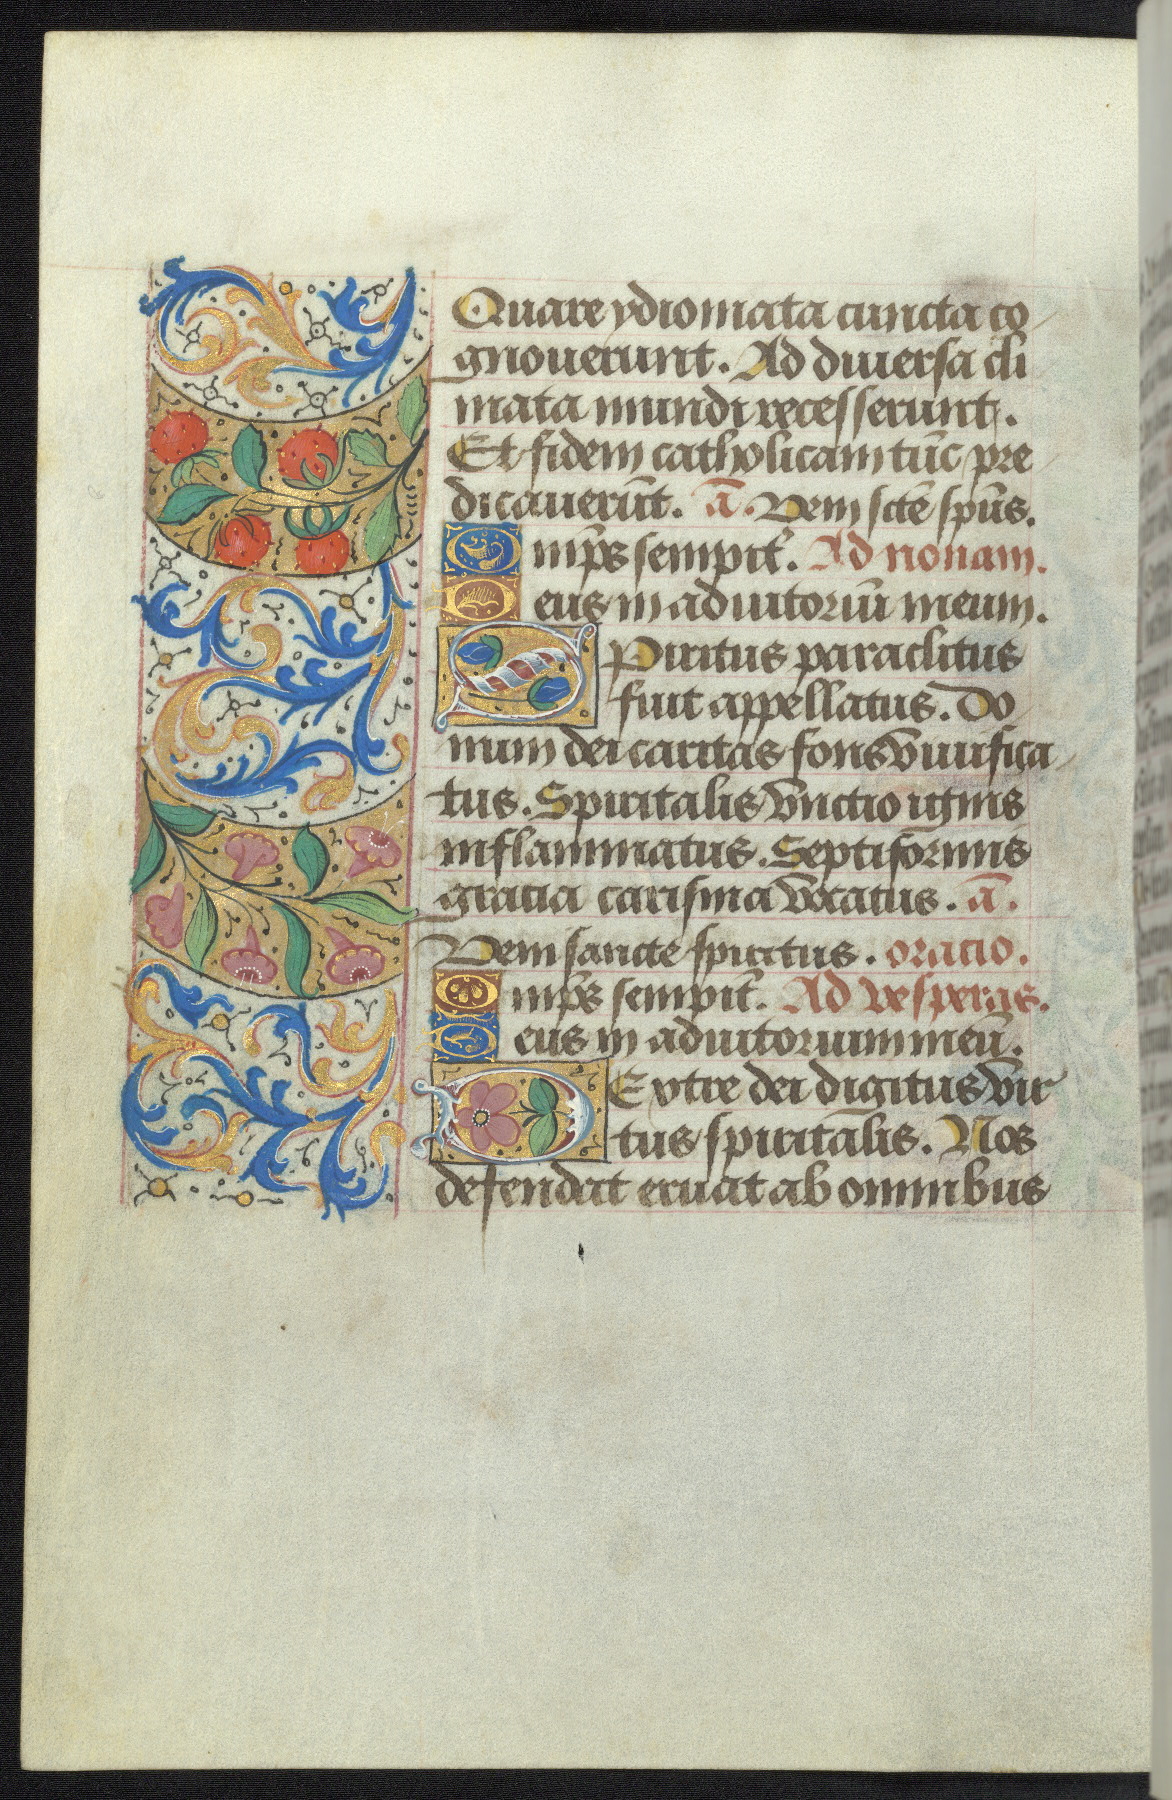 Quare ydiomata cuncta co
gnouerunt. Ad diuersa cli
mata mundi recesserunt.
Et fidem catholicam tūc pre
dicauerūt. ā. Veni sctē spūs.
Omps̄ sempit̄. Ad nonam.
Deus in adiutoriū meum.
Spiritus paraclitus
fuit appellatus. Do
num dei caritas fons viuifica
tus. Spiritalis vnctio ignis
inflammatus. Septiformis
gracia carisma vocatus. ā.
Veni sancte spiritus. oracio.
Omps̄ sempit̄. Ad vesperas.
Deus in adiutorium meū.
Dextre dei digitus vir
tus spiritalis. Nos
defendat eruat ab omnibus